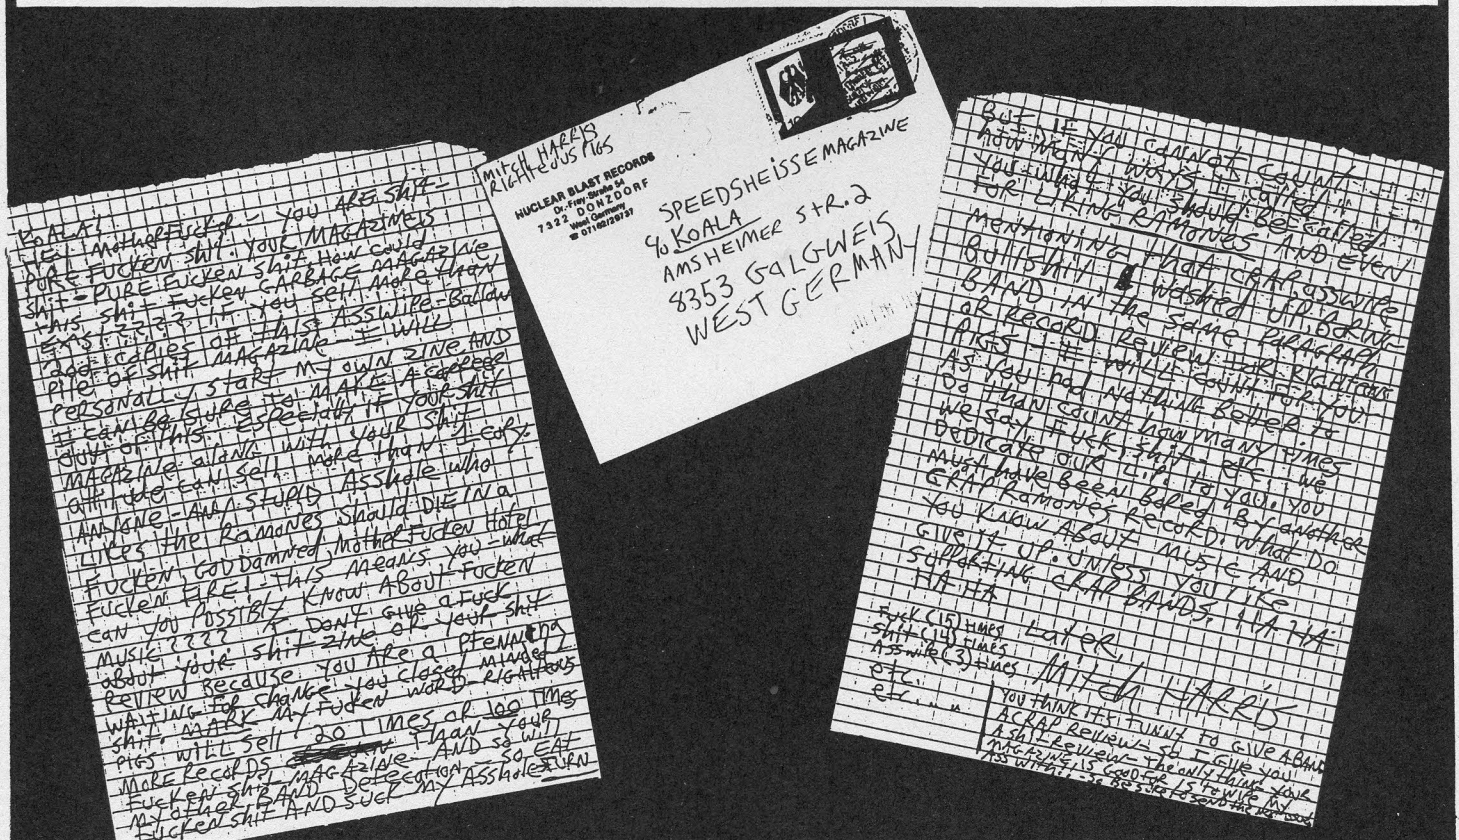 KOALA!
HEY MotherFucker - YOU ARE Shit -
PURE FUCKEN Shit. YOUR MAGAZINE IS
Shit - PURE FUCKEN Shit. How could
this Shit Fucken GARBAGE MAGAZINE
EXIST???? IF YOU SELL MORE than
200 copies OF THIS ASSWIPE-
PILE OF Shit MAGAZINE - I WILL
PERSONALLY START MY OWN ZINE AND
I CAN BE SURE TO MAKE A
OUT OF THIS. ESPECIALLY IF YOUR Shit
MAGAZINE ALONG with YOUR Shit
Attitude CAN Sell MORE than 1 copy.
ANYONE - ANY STUPID Asshole who
LIKES the RAMONES Should DIE IN a
FUCKEN, GOD Damned, MotherFucken Hotel
FUCKEN FIRE! - This MEANS YOU - what
can YOU POSSIBLY KNOW ABOUT FUCKEN
MUSIC???? I DON'T GIVE a FUCK
about YOUR Shit ZINE OR YOUR Shit
REVIEW BECAUSE YOU ARE a PFENNING
WAITING FOR CHANGE YOU CLOSED MINDED
Shit. MARK MY FUCKEN WORD - RIGHTEOUS
PIGS WILL SELL 20 TIMES OR 100 TIMES
MORE RECORDS THAN YOUR
FUCKEN Shit MAGAZINE - AND SO will
MY OTHER BAND DEFECATION - SO EAT
FUCKEN Shit AND SUCK MY ASSHOLE
TURN
MITCH HARRIS
RIGHTEOUS PIGS
NUCLEAR BLAST RECORDS
Dr.-Frey-Straße 54
7322 DONZDORF
West Germany
☎ 07162/29737
SPEEDSHEISSE MAGAZINE
c/o KOALA
AMSHEIMER STR. 2
8353 GALGWEIS
WEST GERMANY
BUT IF YOU CANNOT COUNT
HOW MANY WAYS I called
YOU what YOU Should BE Called
FOR LIKING RAMONES AND EVEN
MENTIONING that CRAP ASSWIPE
BULLShit, washed UP, BORING
BAND IN the SAME PARAGRAPH
OR RECORD REVIEW FOR RIGHTEOUS
PIGS. I WILL COUNT FOR YOU
AS YOU had NOTHING BETTER to
DO than count how many times
WE SAY FUCK, Shit, etc. WE
DEDICATE OUR L.P. to YOU. YOU
Must have BEEN BORED BY another
CRAP RAMONES RECORD. What DO
YOU KNOW ABOUT MUSIC AND
GIVE IT UP. UNLESS YOU LIKE
SUPPORTING CRAP BANDS. HA HA
HA HA
Fuck (15) times
Shit (14) times
Asswipe (3) times
etc.
etc....
Later,
Mitch HARRIS
YOU THINK IT'S FUNNY TO GIVE A BAND
A CRAP REVIEW - SO I GIVE YOU
A Shit REVIEW - The only thing YOUR
MAGAZINE IS GOOD FOR IS to WIPE MY
ASS WITH!! - BE SURE to SEND the next